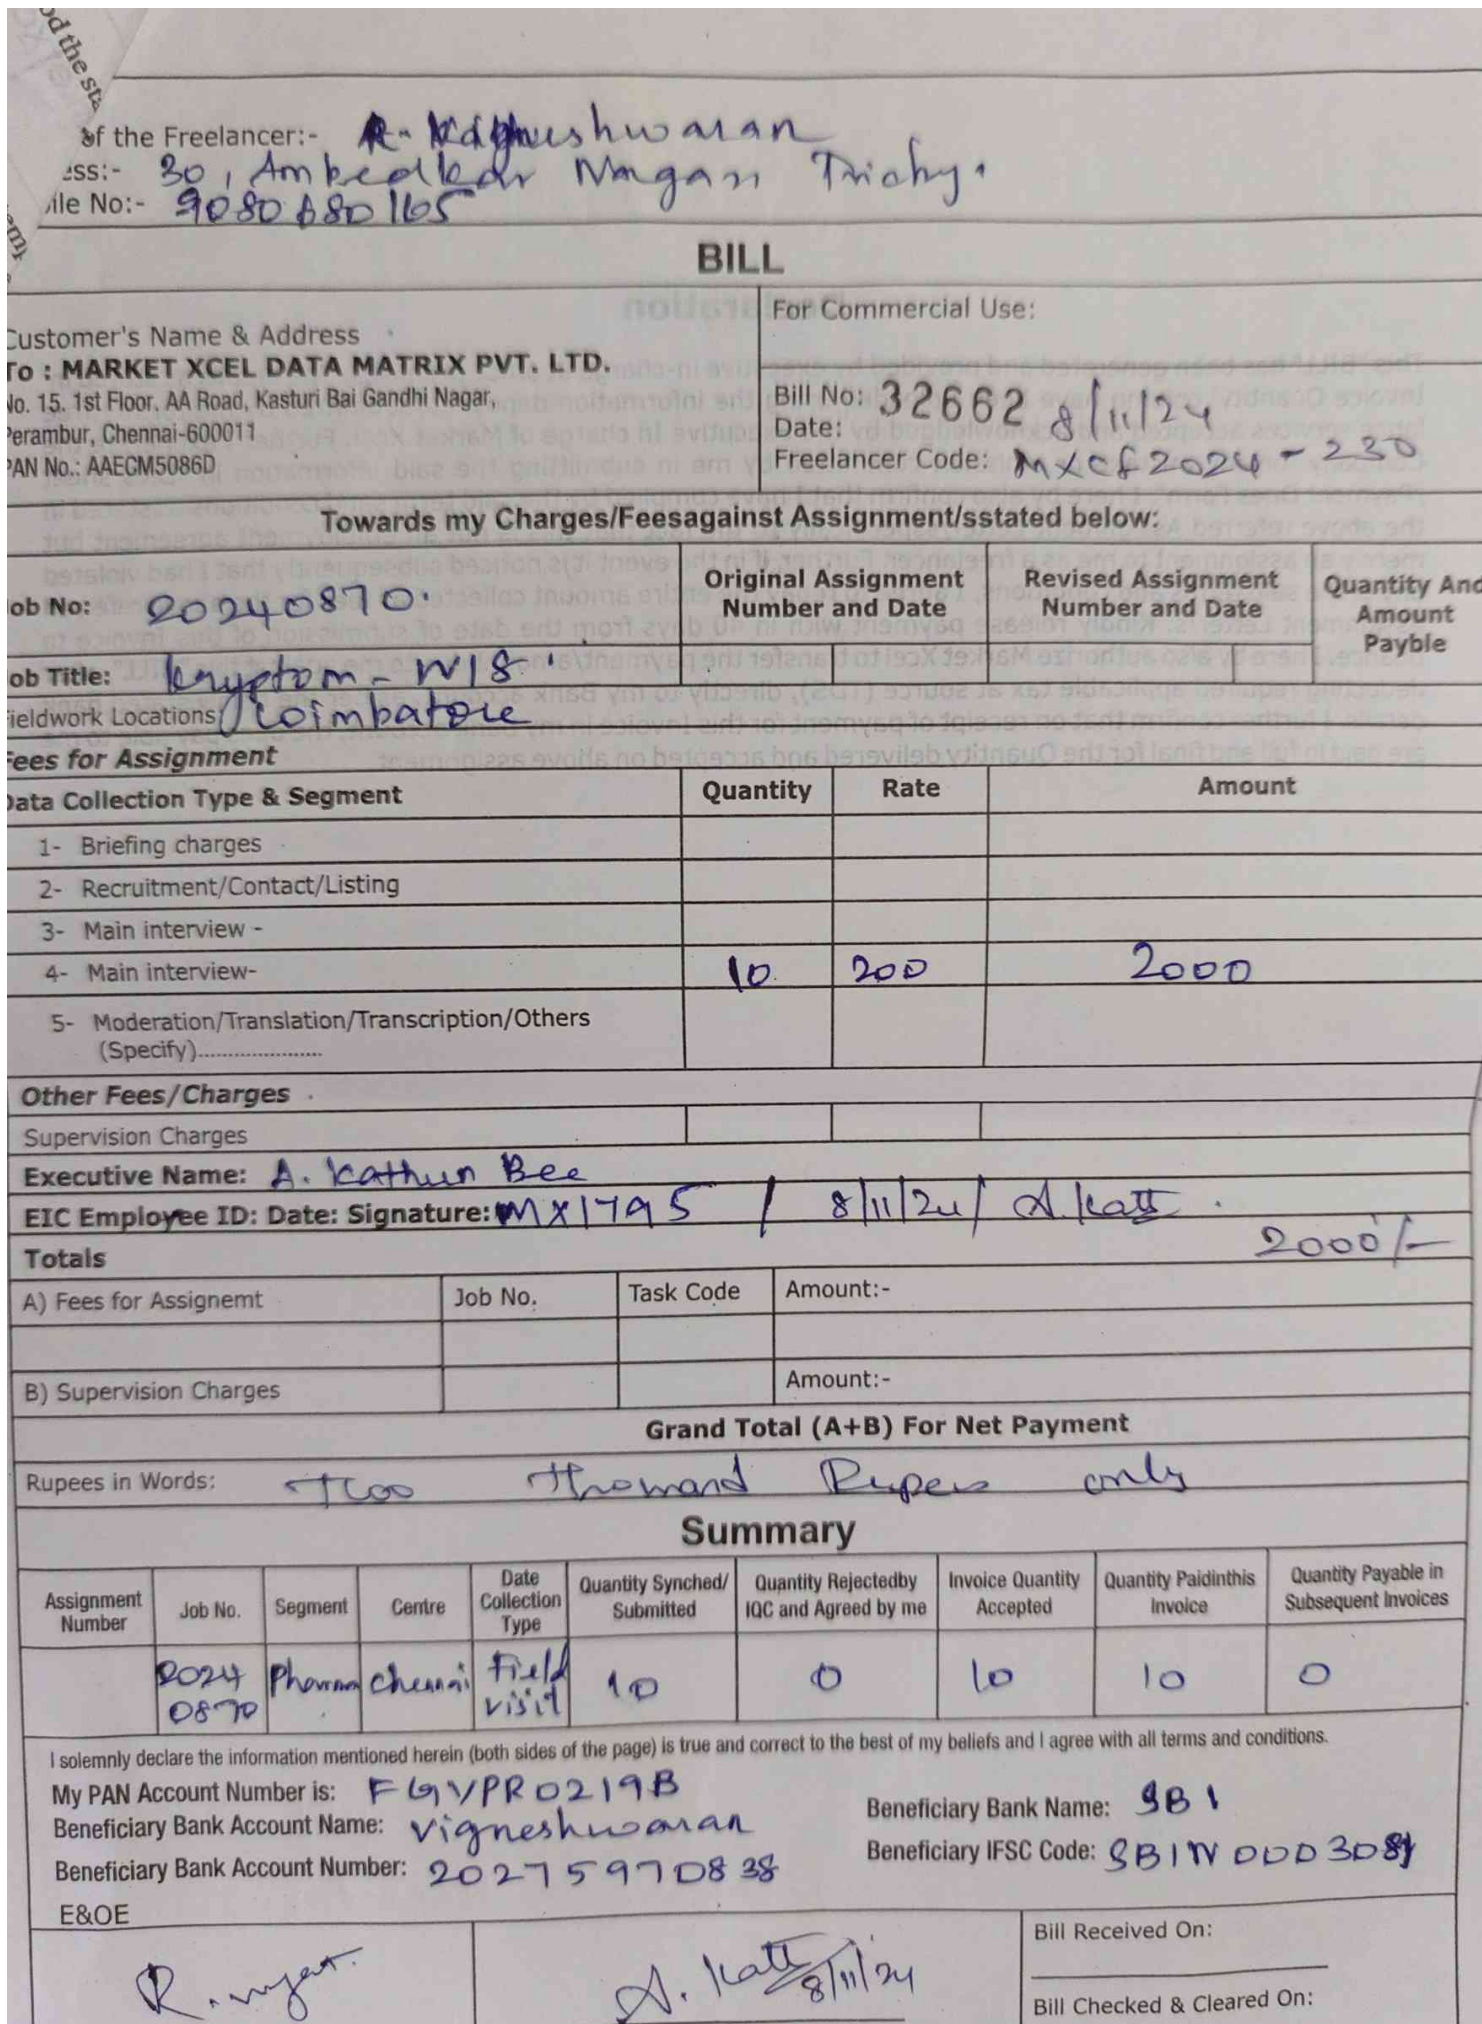 od the sta
of the Freelancer:- R. Vigneshwaran
ess:- 30, Ambedkar Nagar Trichy.
ile No:- 9080680165
BILL
Customer's Name & Address
To : MARKET XCEL DATA MATRIX PVT. LTD.
No. 15. 1st Floor, AA Road, Kasturi Bai Gandhi Nagar,
Perambur, Chennai-600011
PAN No.: AAECM5086D
For Commercial Use:
Bill No: 32662
Date: 8/11/24
Freelancer Code: MXCF2024-230
Towards my Charges/Feesagainst Assignment/sstated below:
ob No: 20240870.
Original Assignment Number and Date
Revised Assignment Number and Date
Quantity And Amount Payble
ob Title: Kryptom - W18
ieldwork Locations Coimbatore
Fees for Assignment
Data Collection Type & Segment Quantity Rate Amount
1- Briefing charges
2- Recruitment/Contact/Listing
3- Main interview -
4- Main interview- 10 200 2000
5- Moderation/Translation/Transcription/Others
(Specify).....................
Other Fees/Charges
Supervision Charges
Executive Name: A. Kathun Bee
EIC Employee ID: Date: Signature: MX1795 / 8/11/24/ A. Katt
Totals 2000/-
A) Fees for Assignemt Job No. Task Code Amount:-
B) Supervision Charges Amount:-
Grand Total (A+B) For Net Payment
Rupees in Words: Two Thousand Rupees only
Summary
Assignment Number
Job No.
Segment
Centre
Date Collection Type
Quantity Synched/ Submitted
Quantity Rejectedby IQC and Agreed by me
Invoice Quantity Accepted
Quantity Paidinthis Invoice
Quantity Payable in Subsequent Invoices
2024 0870 Pharma Chennai Field visit 10 0 10 10 0
I solemnly declare the information mentioned herein (both sides of the page) is true and correct to the best of my beliefs and I agree with all terms and conditions.
My PAN Account Number is: FGVPR0219B
Beneficiary Bank Name: SBI
Beneficiary Bank Account Name: Vigneshwaran
Beneficiary IFSC Code: SBIN000308
Beneficiary Bank Account Number: 20275970838
E&OE
A. Katt 8/11/24
Bill Received On:
Bill Checked & Cleared On: